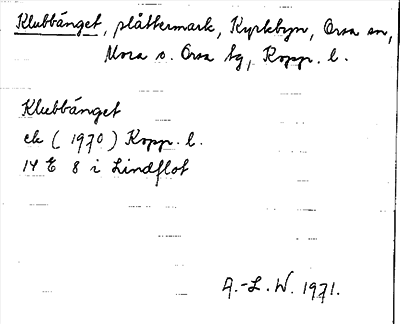 Klubbänget, slåttermark, Kyrkbyn, Orsa sn,
Mora o. Orsa tg, Kopp. l.
Klubbänget
ek (1970) Kopp. l.
14 E 8 i Lindflot
A.-L. W. 1971.